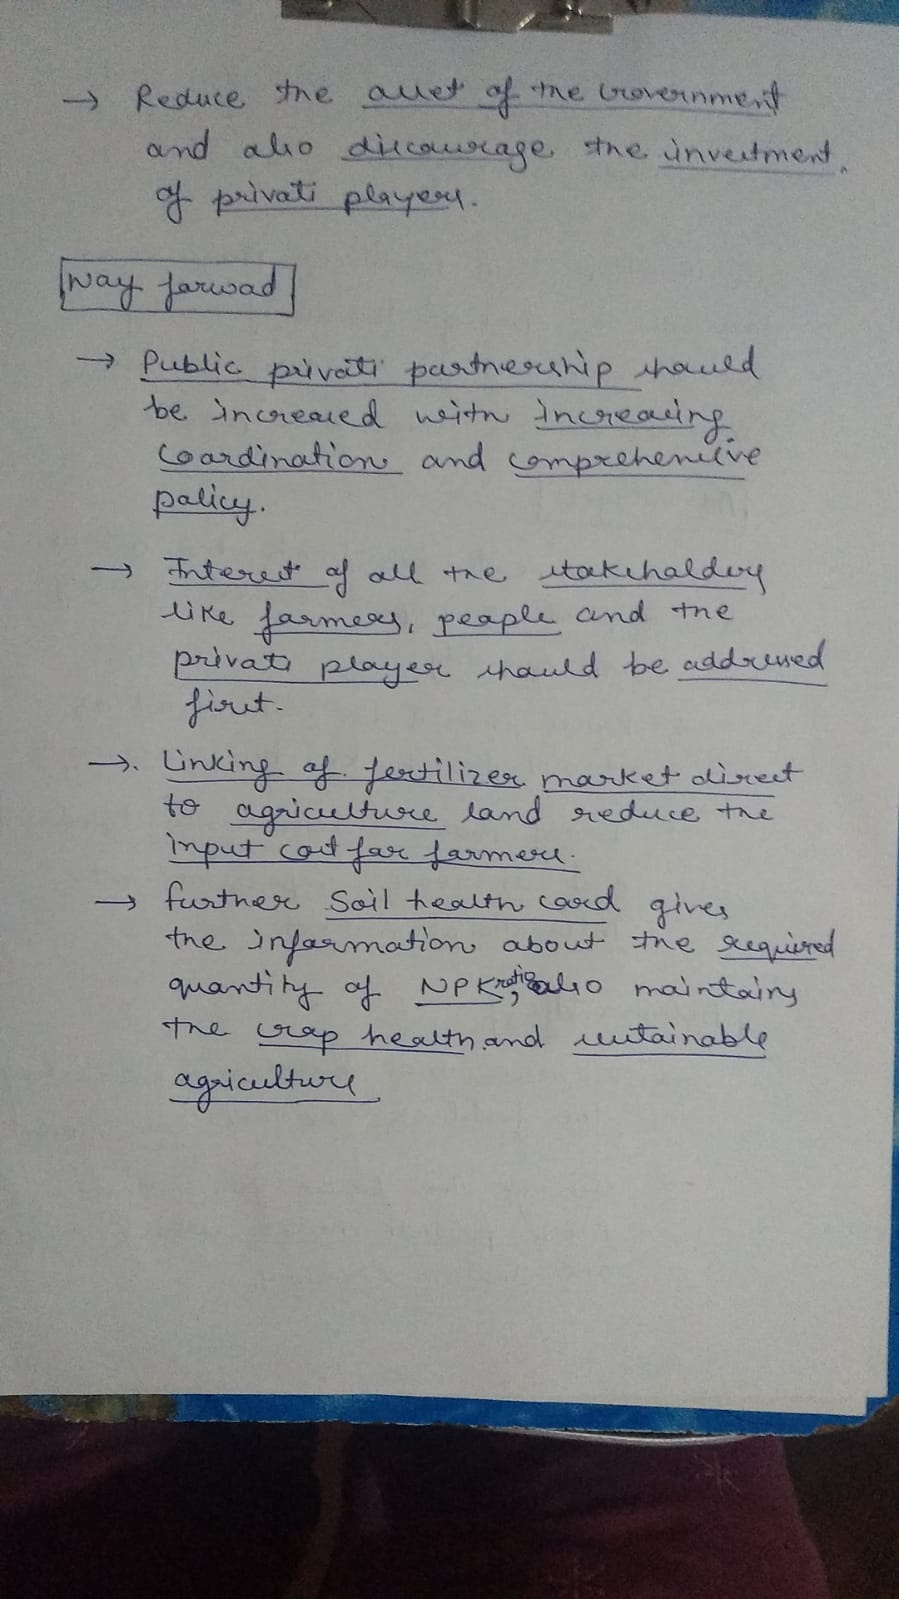 → Reduce the asset of the Government
and also discourage the investment
of private players.
Way forwad
→ Public private partnership should
be increased with increasing
coordination and comprehensive
policy.
→ Interest of all the stakeholders
like farmers, people and the
private player should be addressed
first.
→ Linking of fertilizer market direct
to agriculture land reduce the
input cost for farmers.
→ further Soil health card gives
the information about the required
quantity of NPK ratio, also maintains
the crop health and sustainable
agriculture